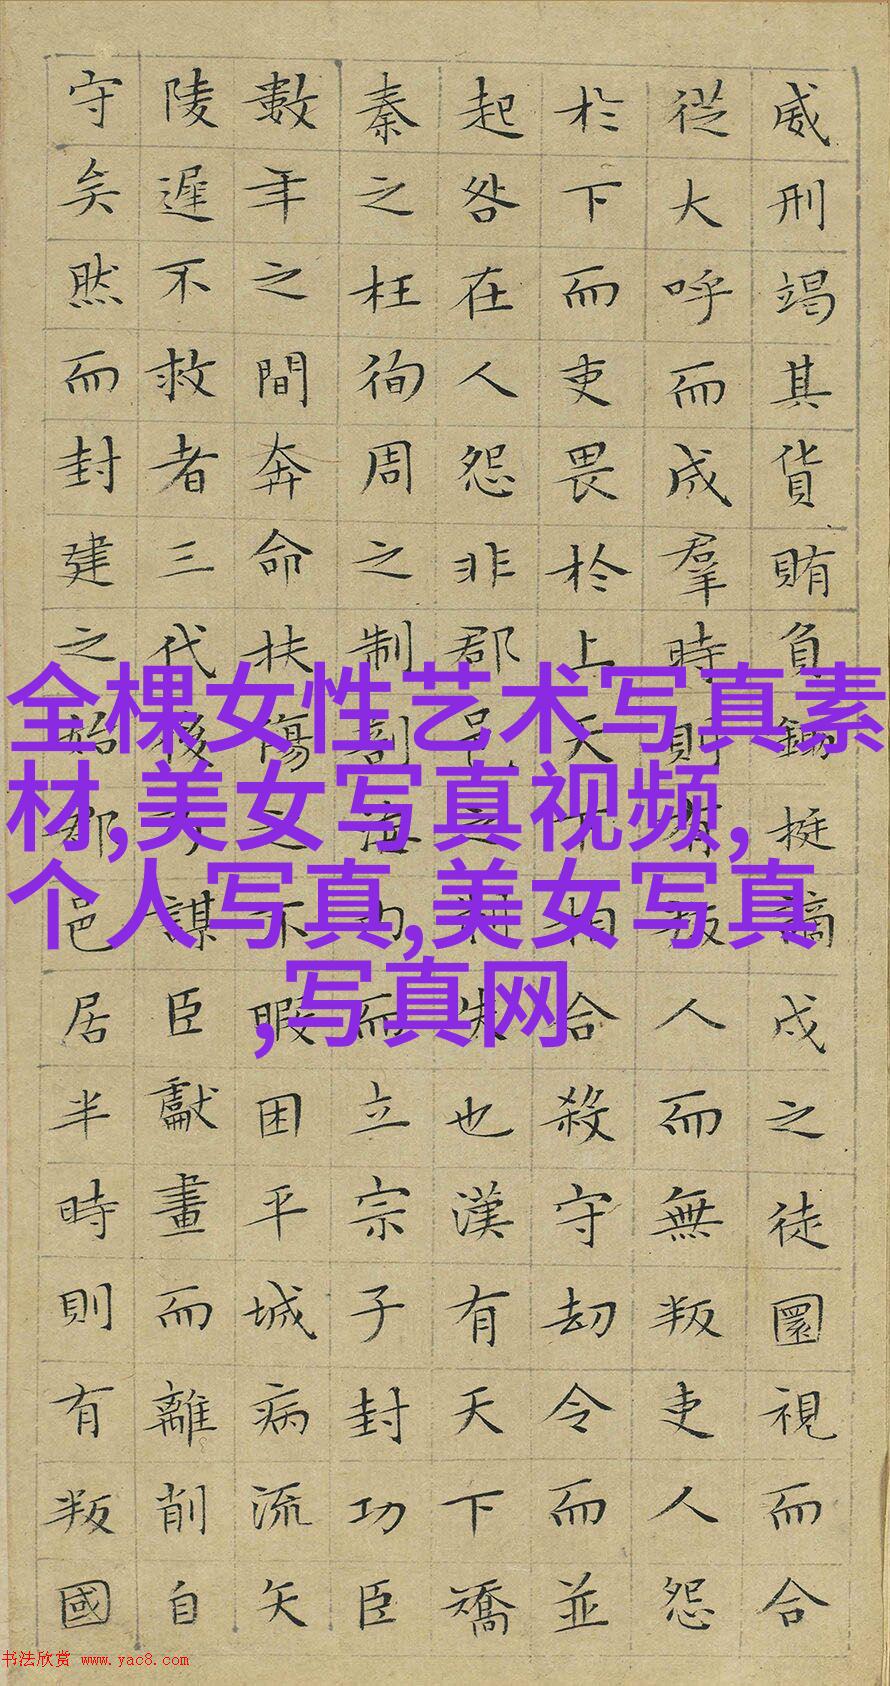 威刑竭其貨賄負鋤梃謫戍之徒圜視而合
從大呼而成羣時則有叛人而無叛吏人怨
於下而吏畏於上天下相合殺守劫令而並
起咎在人怨非郡邑之制失也漢有天下矯
秦之枉徇周之制剖海內而立宗子封功臣
數年之間奔命扶傷之不暇困平城病流矢
陵遲不救者三代後乃謀臣獻畫而離削自
守矣然而封建之始郡邑居半時則有叛國
全棵女性艺术写真素
材,美女写真视频,
个人写真,美女写真
,写真网
书法欣赏 www.yac8.com